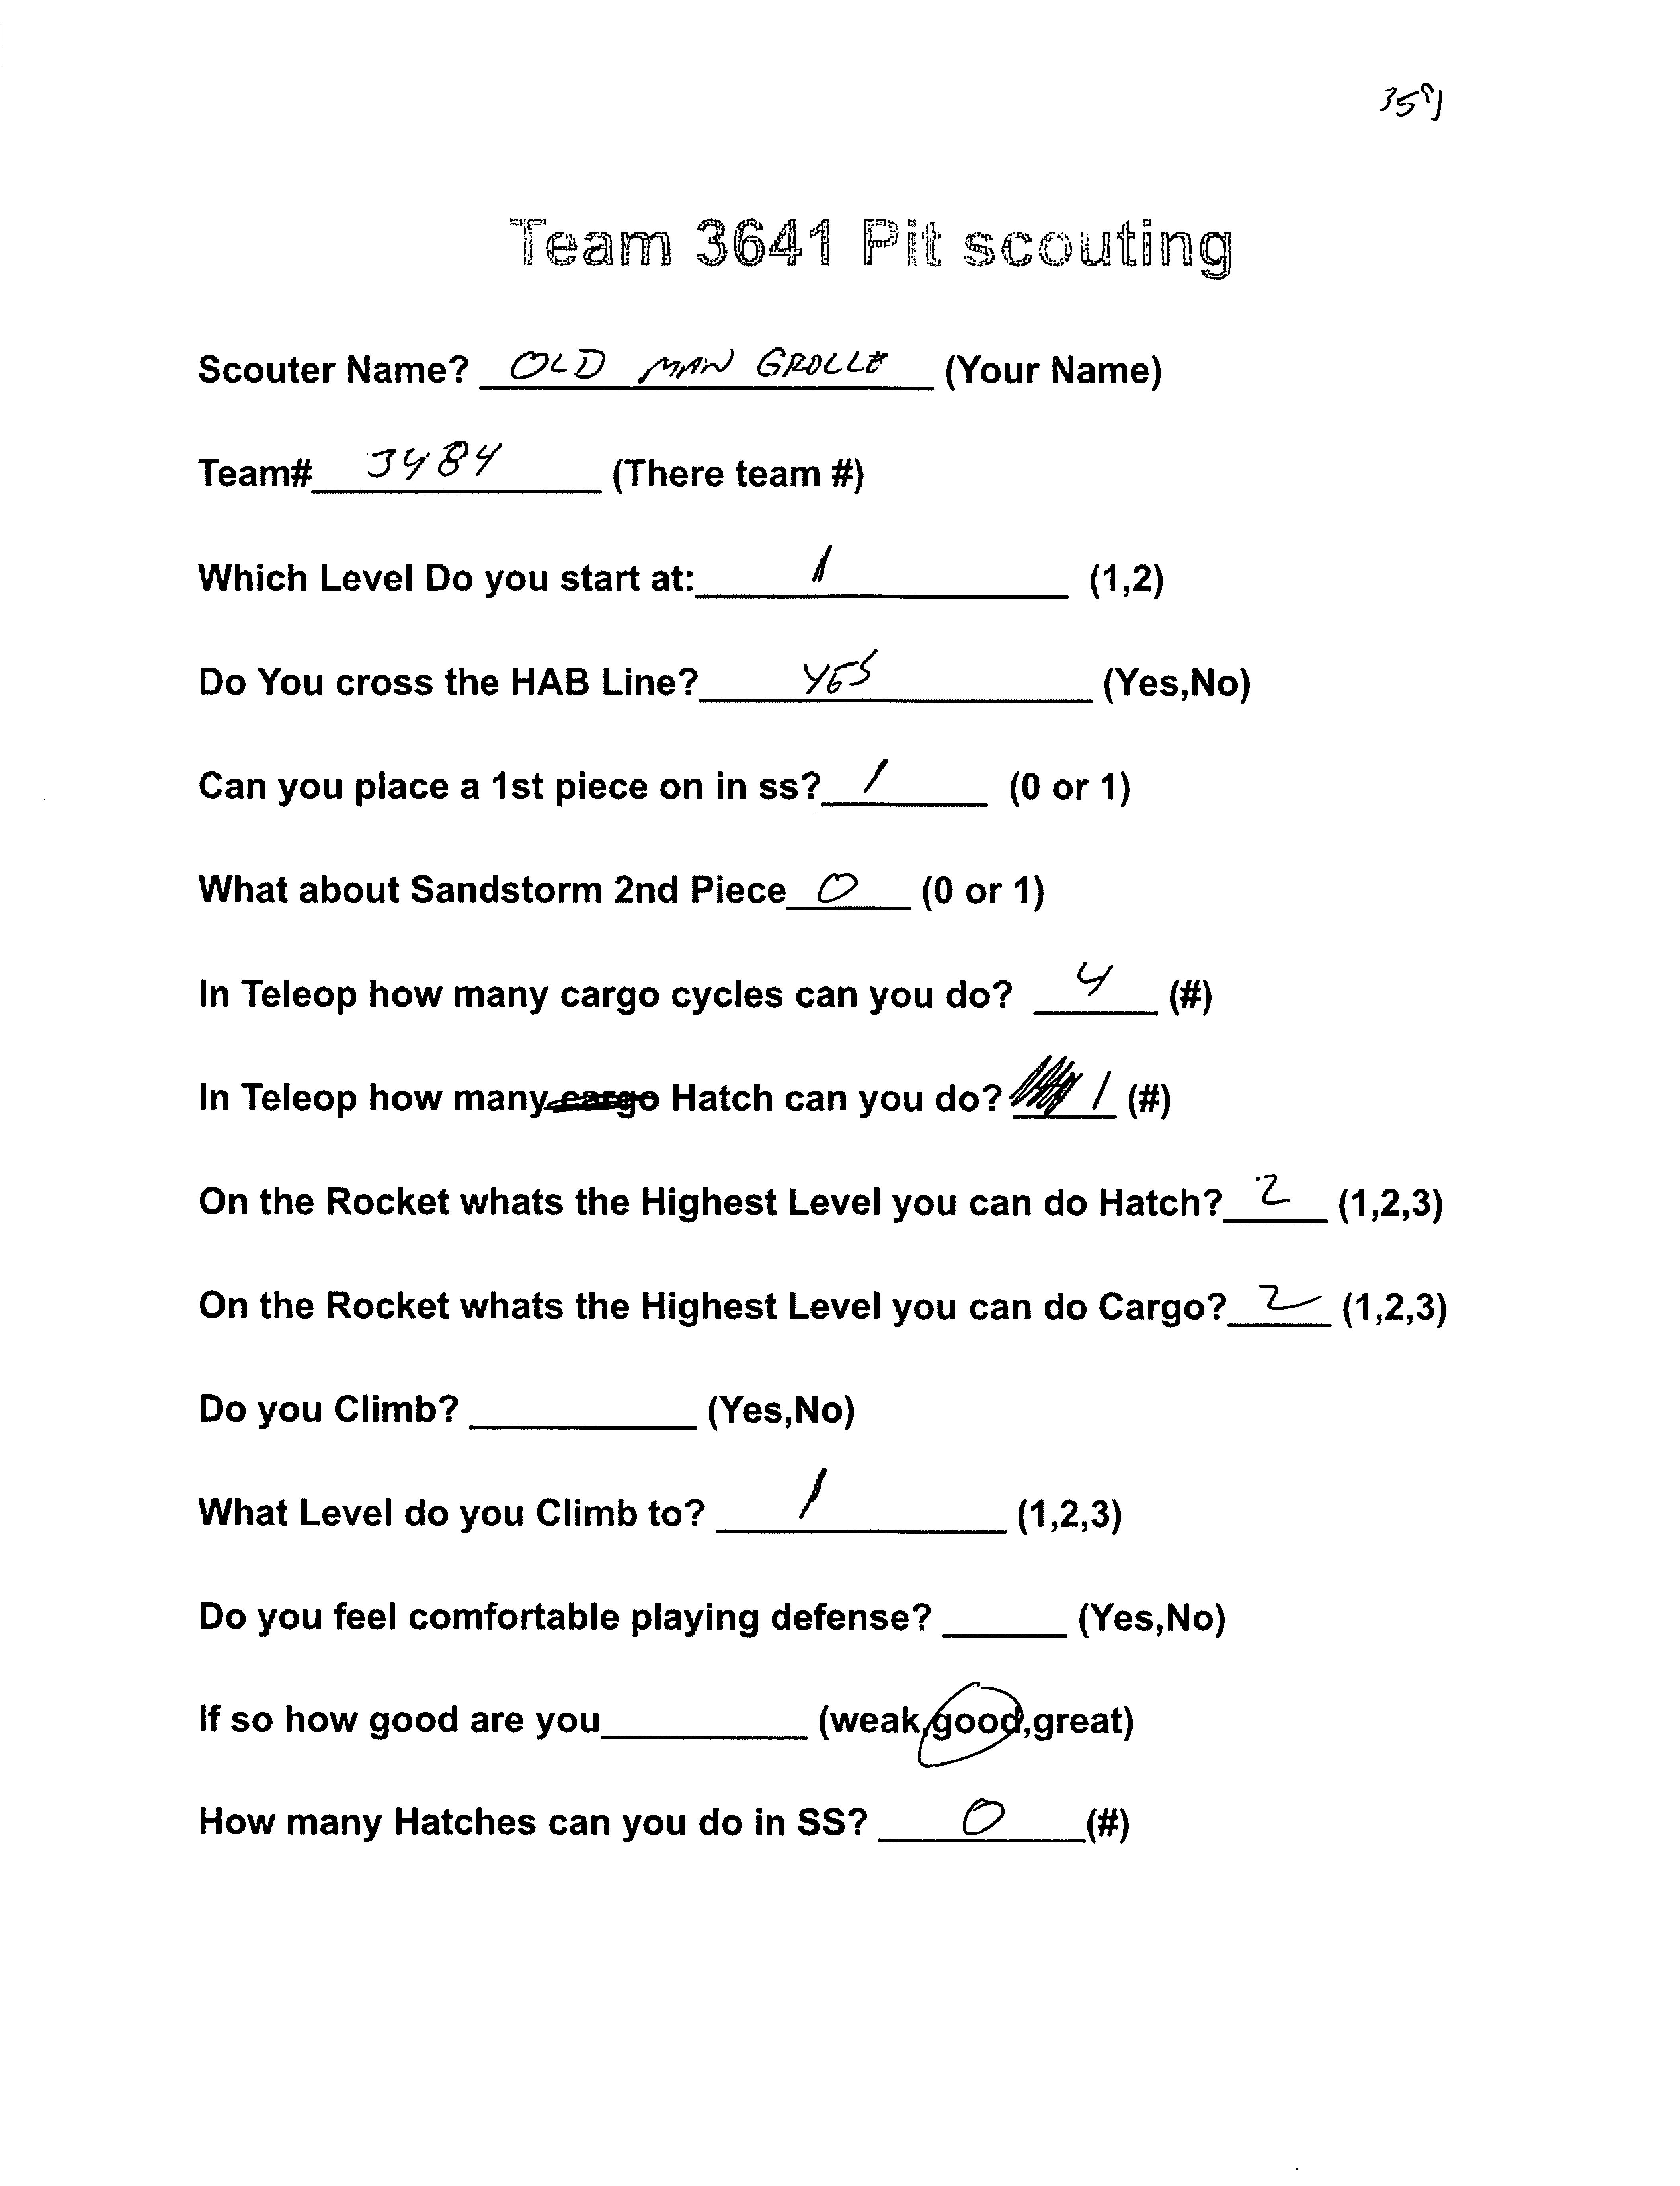 Team 3641 Pit scouting
Scouter Name? OLD MAN GROLLE (Your Name)
Team# 3484 (There team #)
Which Level Do you start at: 1 (1,2)
Do You cross the HAB Line? YES (Yes,No)
Can you place a 1st piece on in ss? 1 (0 or 1)
What about Sandstorm 2nd Piece 0 (0 or 1)
In Teleop how many cargo cycles can you do? 4 (#)
In Teleop how many cargo Hatch can you do? 1 (#)
On the Rocket whats the Highest Level you can do Hatch? 2 (1,2,3)
On the Rocket whats the Highest Level you can do Cargo? 2 (1,2,3)
Do you Climb? (Yes,No)
What Level do you Climb to? 1 (1,2,3)
Do you feel comfortable playing defense? (Yes,No)
If so how good are you (weak,good,great)
How many Hatches can you do in SS? 0 (#)